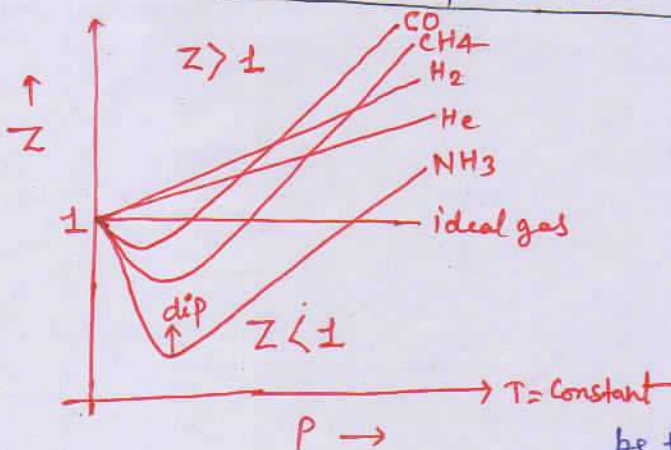 CO
CH4
Z > 1
H2
↑
Z
He
NH3
1
ideal gas
dip
↑
Z < 1
T = Constant
P →
be